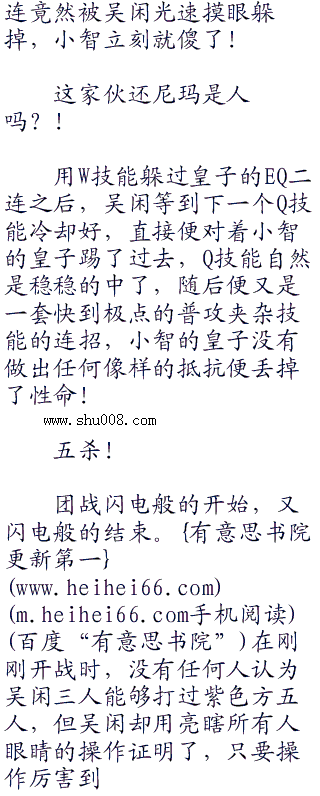 连竟然被吴闲光速摸眼躲
掉，小智立刻就傻了！
这家伙还尼玛是人
吗？！
用W技能躲过皇子的EQ二
连之后，吴闲等到下一个Q技
能冷却好，直接便对着小智
的皇子踢了过去，Q技能自然
是稳稳的中了，随后便又是
一套快到极点的普攻夹杂技
能的连招，小智的皇子没有
做出任何像样的抵抗便丢掉
了性命！
www.shu008.com
五杀！
团战闪电般的开始，又
闪电般的结束。{有意思书院
更新第一}
(www.heihei66.com)
(m.heihei66.com手机阅读)
(百度“有意思书院”)在刚
刚开战时，没有任何人认为
吴闲三人能够打过紫色方五
人，但吴闲却用亮瞎所有人
眼睛的操作证明了，只要操
作厉害到